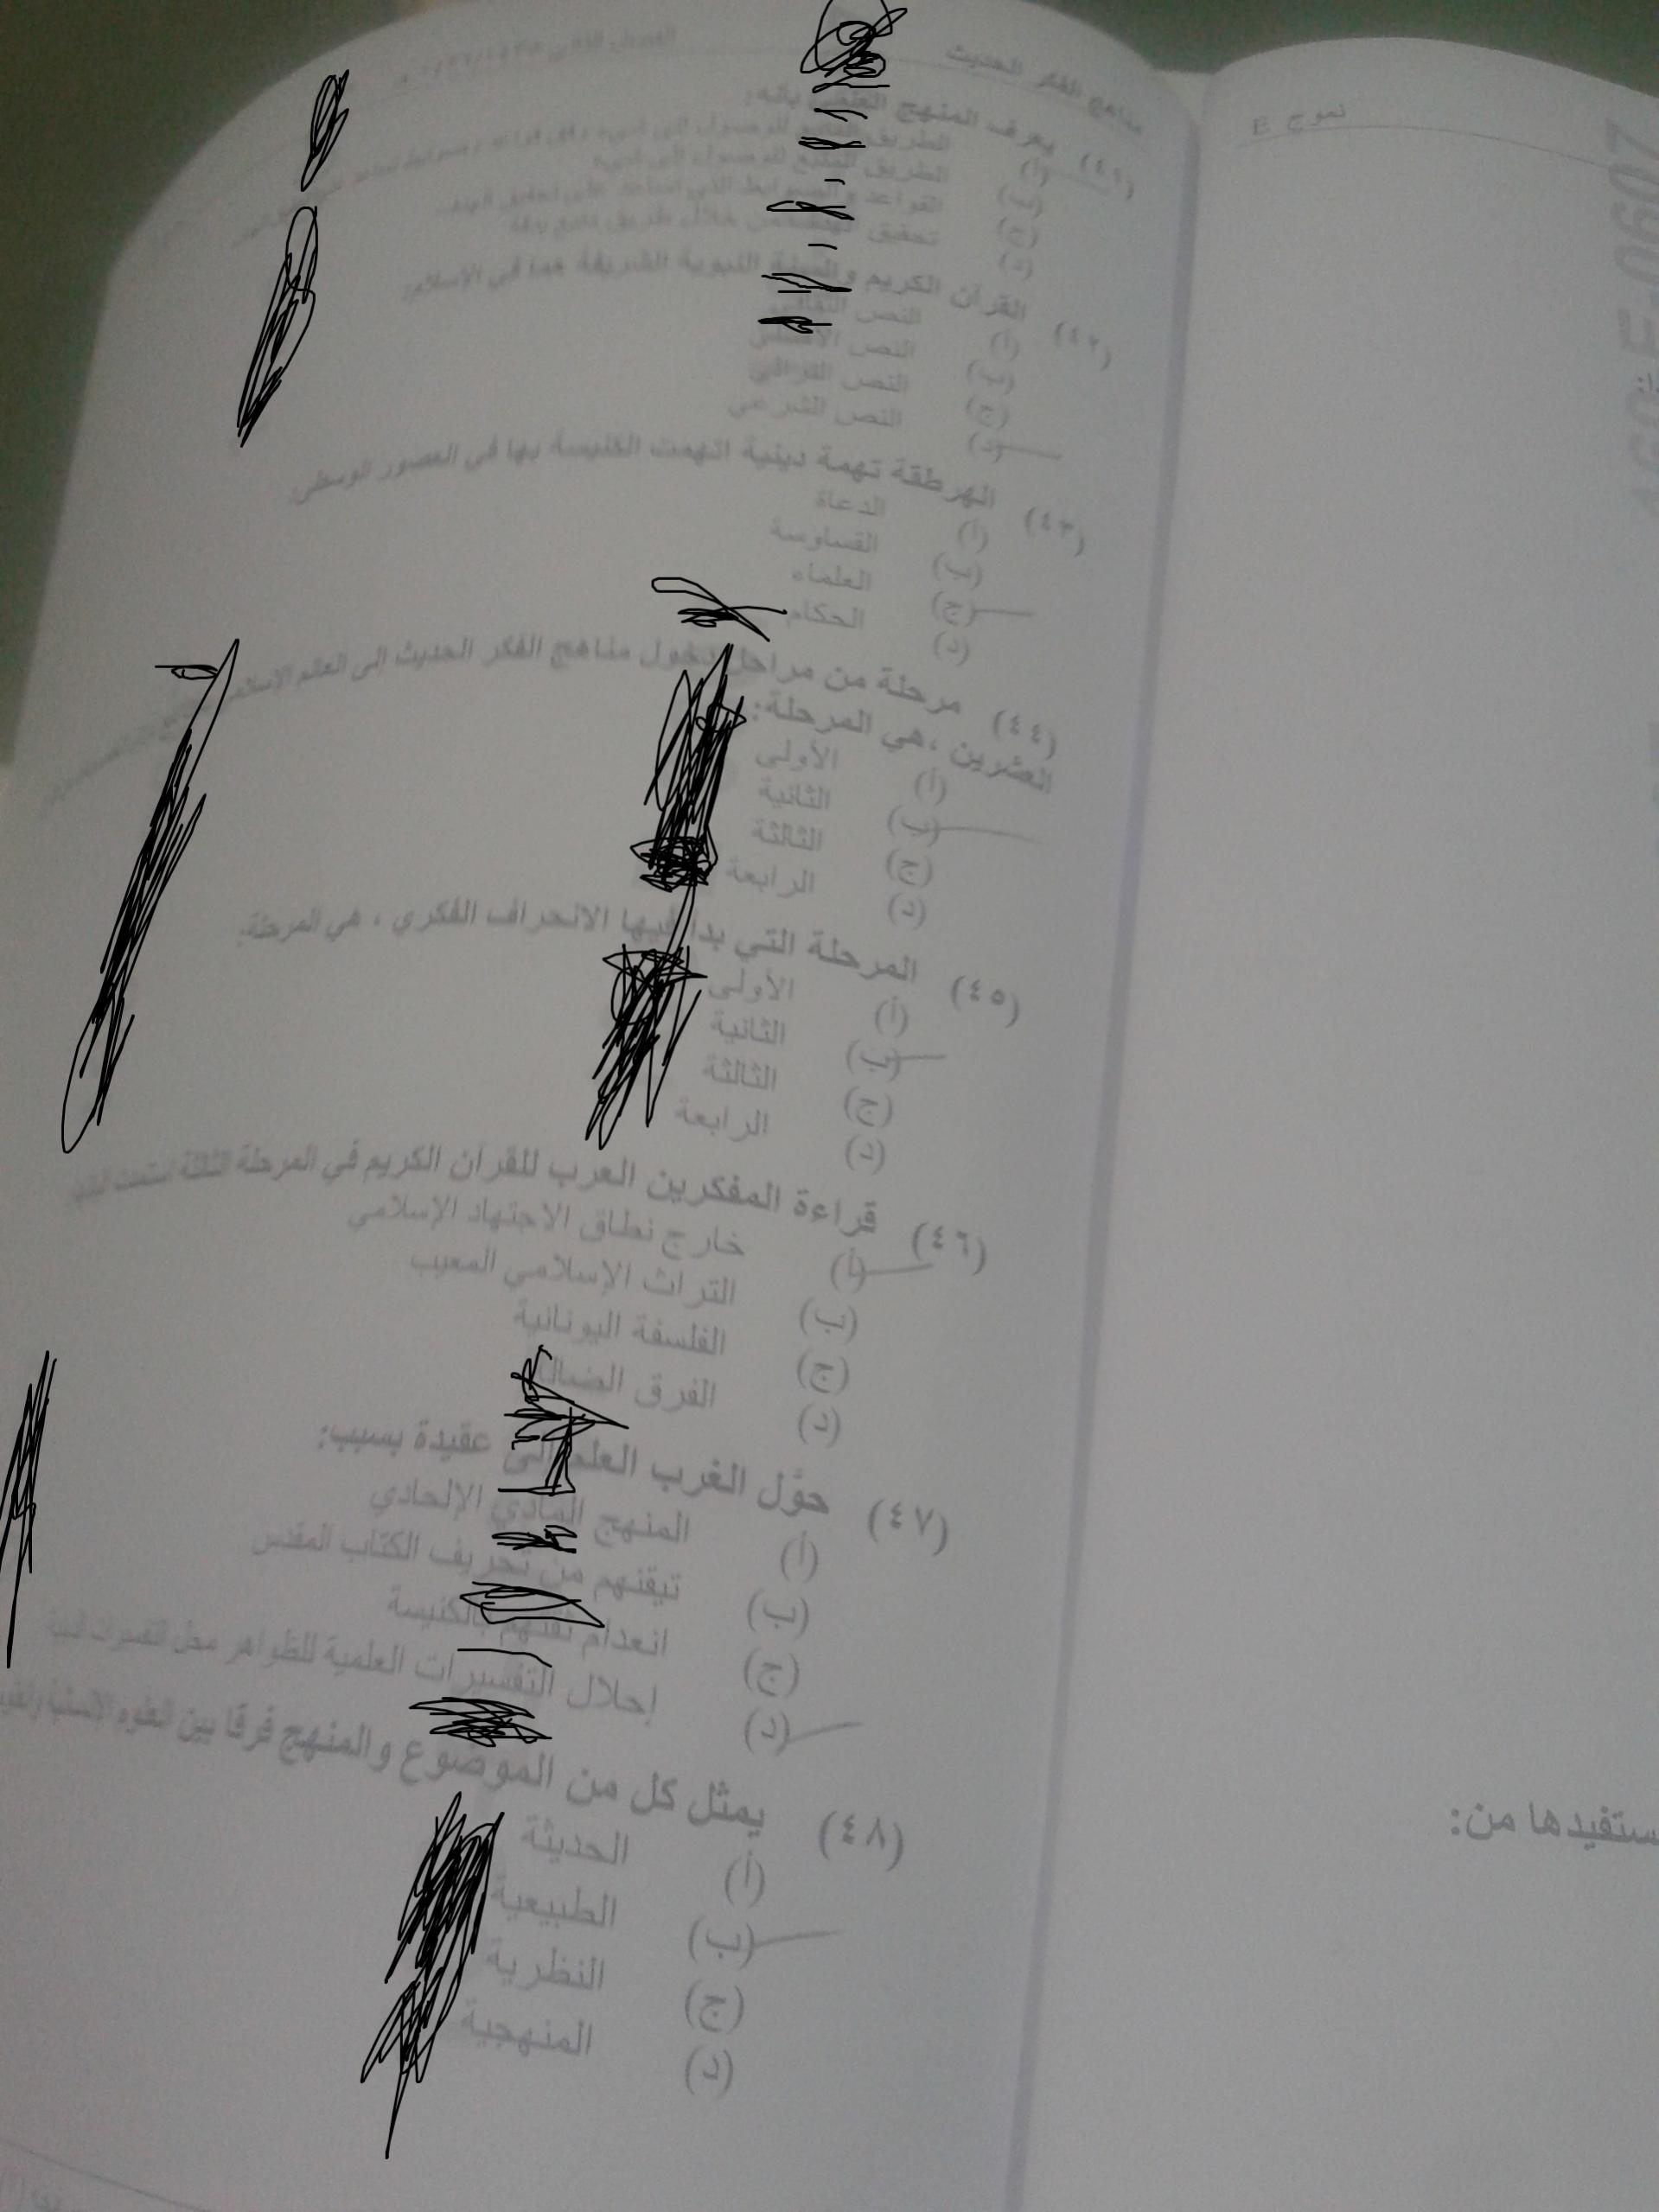 مناهج الفكر الحديث
نموذج B
(٤١) يعرف المنهج العلمي بأنه:
(أ) الطريق المتبع للوصول إلى شيء وفق قواعد وضوابط
(ب) الطريق المتبع للوصول إلى شيء
(ج) القواعد والضوابط التي تساعد على تحقيق الهدف
(د) تحقيق الهدف من خلال طريق
(٤٢) القرآن الكريم والسنة النبوية الشريفة هما في الإسلام:
(أ) النص الثقافي
(ب) النص
(ج) النص التراثي
(د) النص الشرعي
(٤٣) الهرطقة تهمة دينية اتهمت الكنيسة بها في العصور الوسطى:
(أ) الدعاة
(ب) القساوسة
(ج) العلماء
(د) الحكام
(٤٤) مرحلة من مراحل دخول مناهج الفكر الحديث إلى العالم
العشرين ،هي المرحلة:
(أ) الأولى
(ب) الثانية
(ج) الثالثة
(د) الرابعة
(٤٥) المرحلة التي بدأ فيها الانحراف الفكري ، هي المرحلة:
(أ) الأولى
(ب) الثانية
(ج) الثالثة
(د) الرابعة
(٤٦) قراءة المفكرين العرب للقرآن الكريم في المرحلة الثالثة
(أ) خارج نطاق الاجتهاد الإسلامي
(ب) التراث الإسلامي المعيب
(ج) الفلسفة اليونانية
(د) الفرق
(٤٧) حوّل الغرب العلم إلى عقيدة بسبب:
(أ) المنهج المادي الإلحادي
(ب) تيقنهم من تحريف الكتاب المقدس
(ج) انعدام ثقتهم بالكنيسة
(د) إحلال التفسيرات العلمية للظواهر محل التفسيرات
(٤٨) يمثل كل من الموضوع والمنهج فرقا بين العلوم
(أ) الحديثة
(ب) الطبيعية
(ج) النظرية
(د) المنهجية
ستفيدها من: